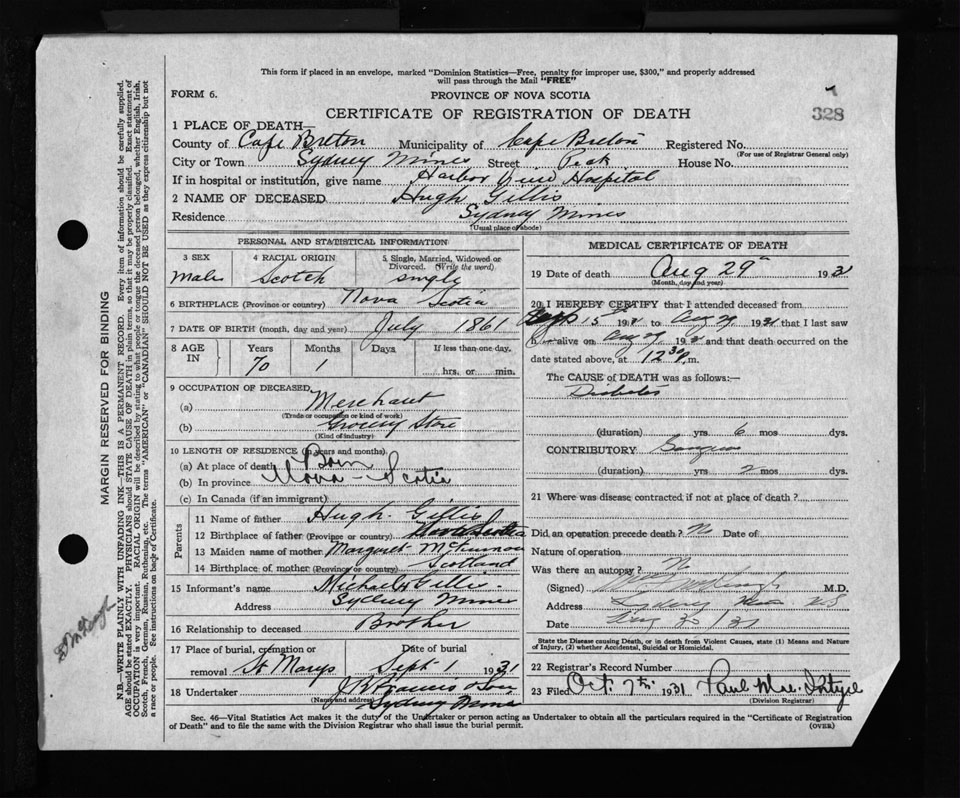 This form if placed in an envelope, marked "Dominion Statistics—Free, penalty for improper use, $300," and properly addressed
will pass through the Mail "FREE"
FORM 6.
PROVINCE OF NOVA SCOTIA
328
CERTIFICATE OF REGISTRATION OF DEATH
1 PLACE OF DEATH—
County of Cape Breton Municipality of Cape Breton Registered No.
(For use of Registrar General only)
City or Town Sydney Mines Street House No.
If in hospital or institution, give name Harbor View Hospital
2 NAME OF DECEASED Hugh Gillis
Residence Sydney Mines
(Usual place of abode)
PERSONAL AND STATISTICAL INFORMATION
3 SEX 4 RACIAL ORIGIN 5 Single, Married, Widowed or Divorced. (Write the word)
Male Scotch single
6 BIRTHPLACE (Province or country) Nova Scotia
7 DATE OF BIRTH (month, day and year) July 1861
8 AGE IN Years Months Days If less than one day.
70 1 hrs. or min.
9 OCCUPATION OF DECEASED
(a) Merchant
(Trade or occupation or kind of work)
(b) Grocery Store
(Kind of industry)
10 LENGTH OF RESIDENCE (in years and months).
(a) At place of death Born
(b) In province Nova-Scotia
(c) In Canada (if an immigrant)
Parents
11 Name of father Hugh Gillis
12 Birthplace of father (Province or country) Nova Scotia
13 Maiden name of mother Margaret
14 Birthplace of mother (Province or country) Scotland
15 Informant's name Michael Gillis
Address Sydney Mines
16 Relationship to deceased Brother
17 Place of burial, cremation or removal St Marys
Date of burial Sept 1 1931
18 Undertaker J R Francis & Son
(Name and address) Sydney Mines
MEDICAL CERTIFICATE OF DEATH
19 Date of death Aug 29th 1931
(Month, day and year)
20 I HEREBY CERTIFY that I attended deceased from
15 1931 to Aug 29 1931 that I last saw
h alive on Aug 29 1931 and that death occurred on the
date stated above, at 12 30 p.m.
The CAUSE of DEATH was as follows:—
Diabetes
(duration) yrs 6 mos dys.
CONTRIBUTORY Gangrene
(duration) yrs 2 mos dys.
21 Where was disease contracted if not at place of death?
Did an operation precede death? No Date of
Nature of operation
Was there an autopsy? No
(Signed) M.D.
Address Sydney Mines N.S
Date Aug 30/31
State the Disease causing Death, or in death from Violent Causes, state (1) Means and Nature
of Injury, (2) whether Accidental, Suicidal or Homicidal.
22 Registrar's Record Number
23 Filed Oct. 7th. 1931 Paul Mac Intyre
(Division Registrar)
Sec. 46—Vital Statistics Act makes it the duty of the Undertaker or person acting as Undertaker to obtain all the particulars required in the "Certificate of Registration
of Death" and to file the same with the Division Registrar who shall issue the burial permit.
(OVER)
MARGIN RESERVED FOR BINDING
N.B.—WRITE PLAINLY WITH UNFADING INK—THIS IS A PERMANENT RECORD. Every item of information should be carefully supplied.
AGE should be stated EXACTLY. PHYSICIANS should STATE CAUSE OF DEATH in plain terms, so that it may be properly classified. Exact statement of
OCCUPATION is very important. RACIAL ORIGIN will be described by stating to what people or tongue the deceased person belonged, whether English, Irish,
Scotch, French, German, Russian, Ruthenian, etc. The terms "AMERICAN" or "CANADIAN" SHOULD NOT BE USED as they express citizenship but not
a race or people. See instructions on back of Certificate.